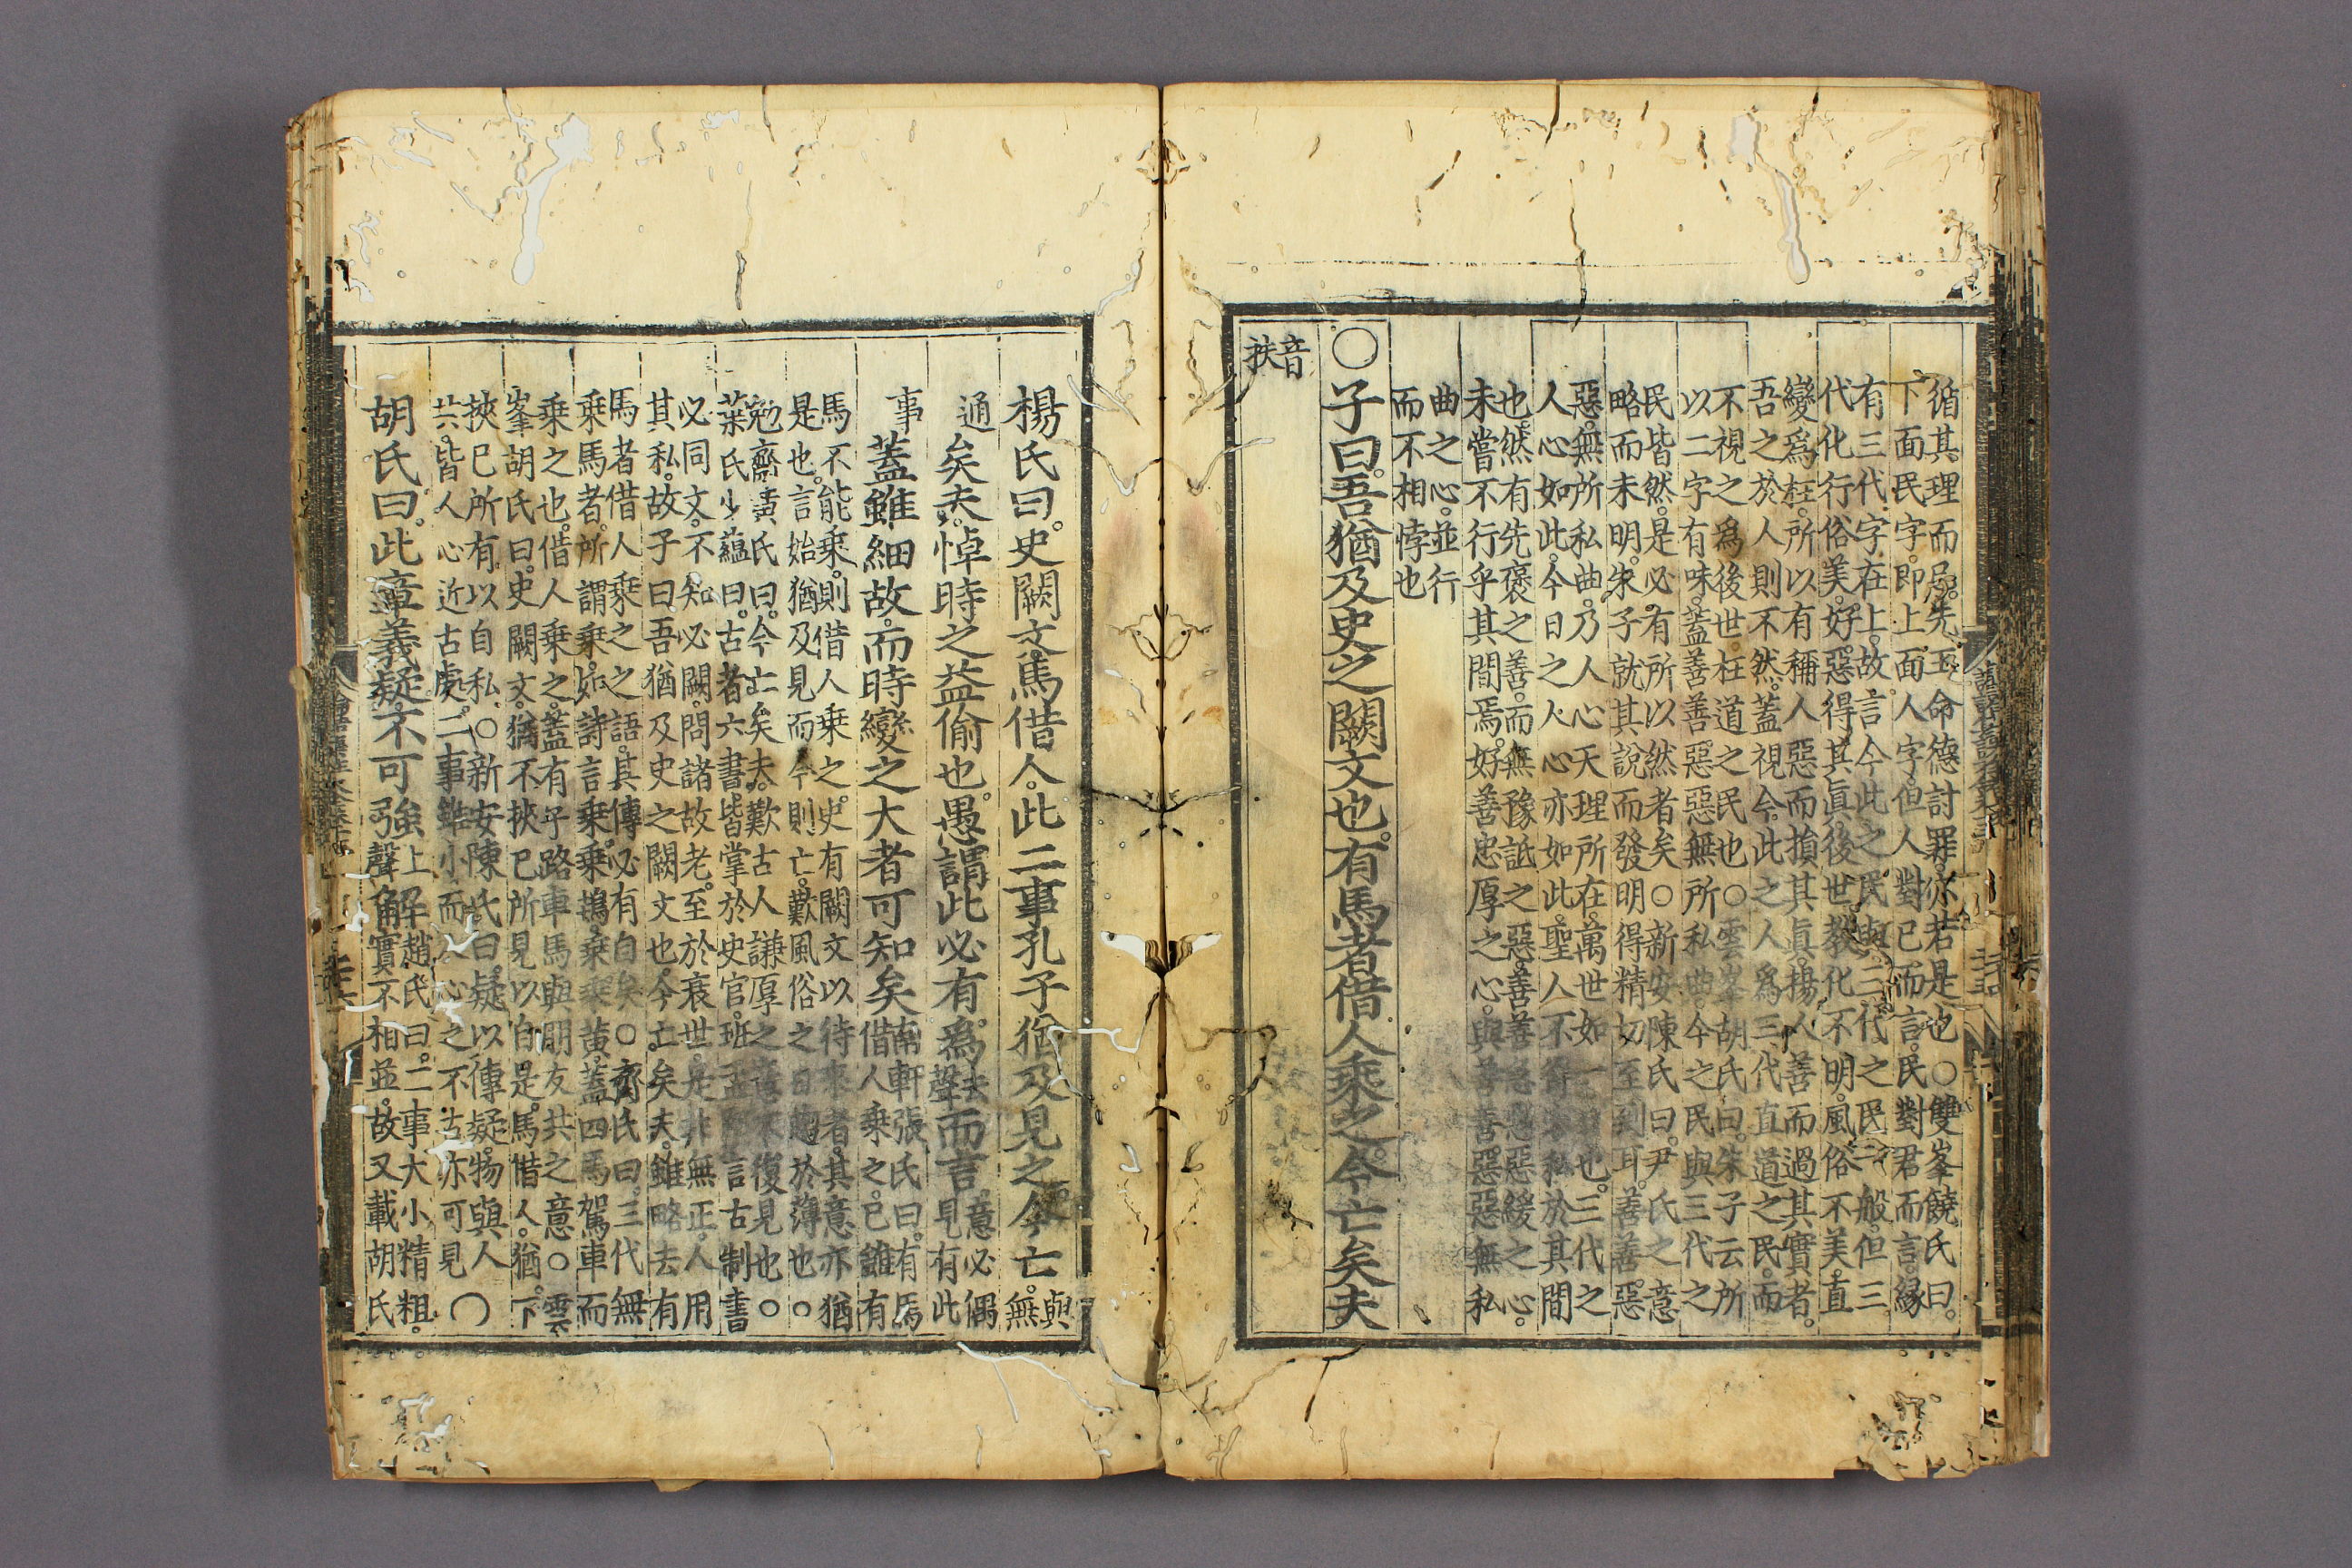 循其理而已。先王命德討罪。亦若是也○雙峯饒氏曰。
下面民字。即上面人字。但人對己而言。民對君而言。緣
有三代字在上。故言今此之民。與三代之民一般。但三
代化行俗美。好惡得其眞。後世教化不明。風俗不美。直
變爲枉。所以有稱人惡而損其眞。揚人善而過其實者。
吾之於人則不然。蓋視今此之人爲三代直道之民。而
不視之爲後世枉道之民也○雲峯胡氏曰。朱子云所
以二字有味。蓋善善惡惡無所私曲。今之民與三代之
民皆然。是必有所以然者矣○新安陳氏曰。尹氏之意
略而未明。朱子就其說而發明得精切至到耳。善善惡
惡。無所私曲。乃人心天理所在。萬世如一日也。三代之
人心如此。今日之人心亦如此。聖人不容私於其間
也。然有先褒之善。而無豫詆之惡。善善急惡惡緩之心。
未嘗不行乎其間焉。好善忠厚之心。與善善惡惡無私
曲之心。並行
而不相悖也
○子曰。吾猶及史之闕文也。有馬者借人乘之。今亡矣夫
音
扶
楊氏曰。史闕文。馬借人。此二事孔子猶及見之。今亡。與
無
通矣夫。悼時之益偷也。愚謂此必有爲。去
聲而言。意必偶
見有此
事蓋雖細故。而時變之大者可知矣南軒張氏曰。有馬
借人乘之。己雖有
馬不能乘。則借人乘之。史有闕文以待來者。其意亦猶
是也。言始猶及見而今則亡。歎風俗之日趨於薄也○
勉齋黃氏曰。今亡矣夫。歎古人謙厚之意不復見也○
葉氏少蘊曰。古者六書。皆掌於史官。班孟堅言古制書
必同文。不知必闕。問諸故老。至於衰世。是非無正。人用
其私。故子曰吾猶及史之闕文也。今亡矣夫。雖略去有
馬者借人乘之之語。其傳必有自矣○齊氏曰。三代無
乘馬者。所謂乘。如詩言乘乘鴇。乘乘黃。蓋四馬駕車而
乘之也。借人乘之。蓋有子路車馬與朋友共之意○雲
峯胡氏曰。史闕文。猶不挾己所見以自是。馬借人。猶不
挾己所有以自私○新安陳氏曰。疑以傳疑。物與人
共。皆人心近古處。二事雖小。而人心之不古亦可見○
胡氏曰。此章義疑。不可強上
聲解趙氏曰。二事大小精粗。
實不相並。故又載胡氏